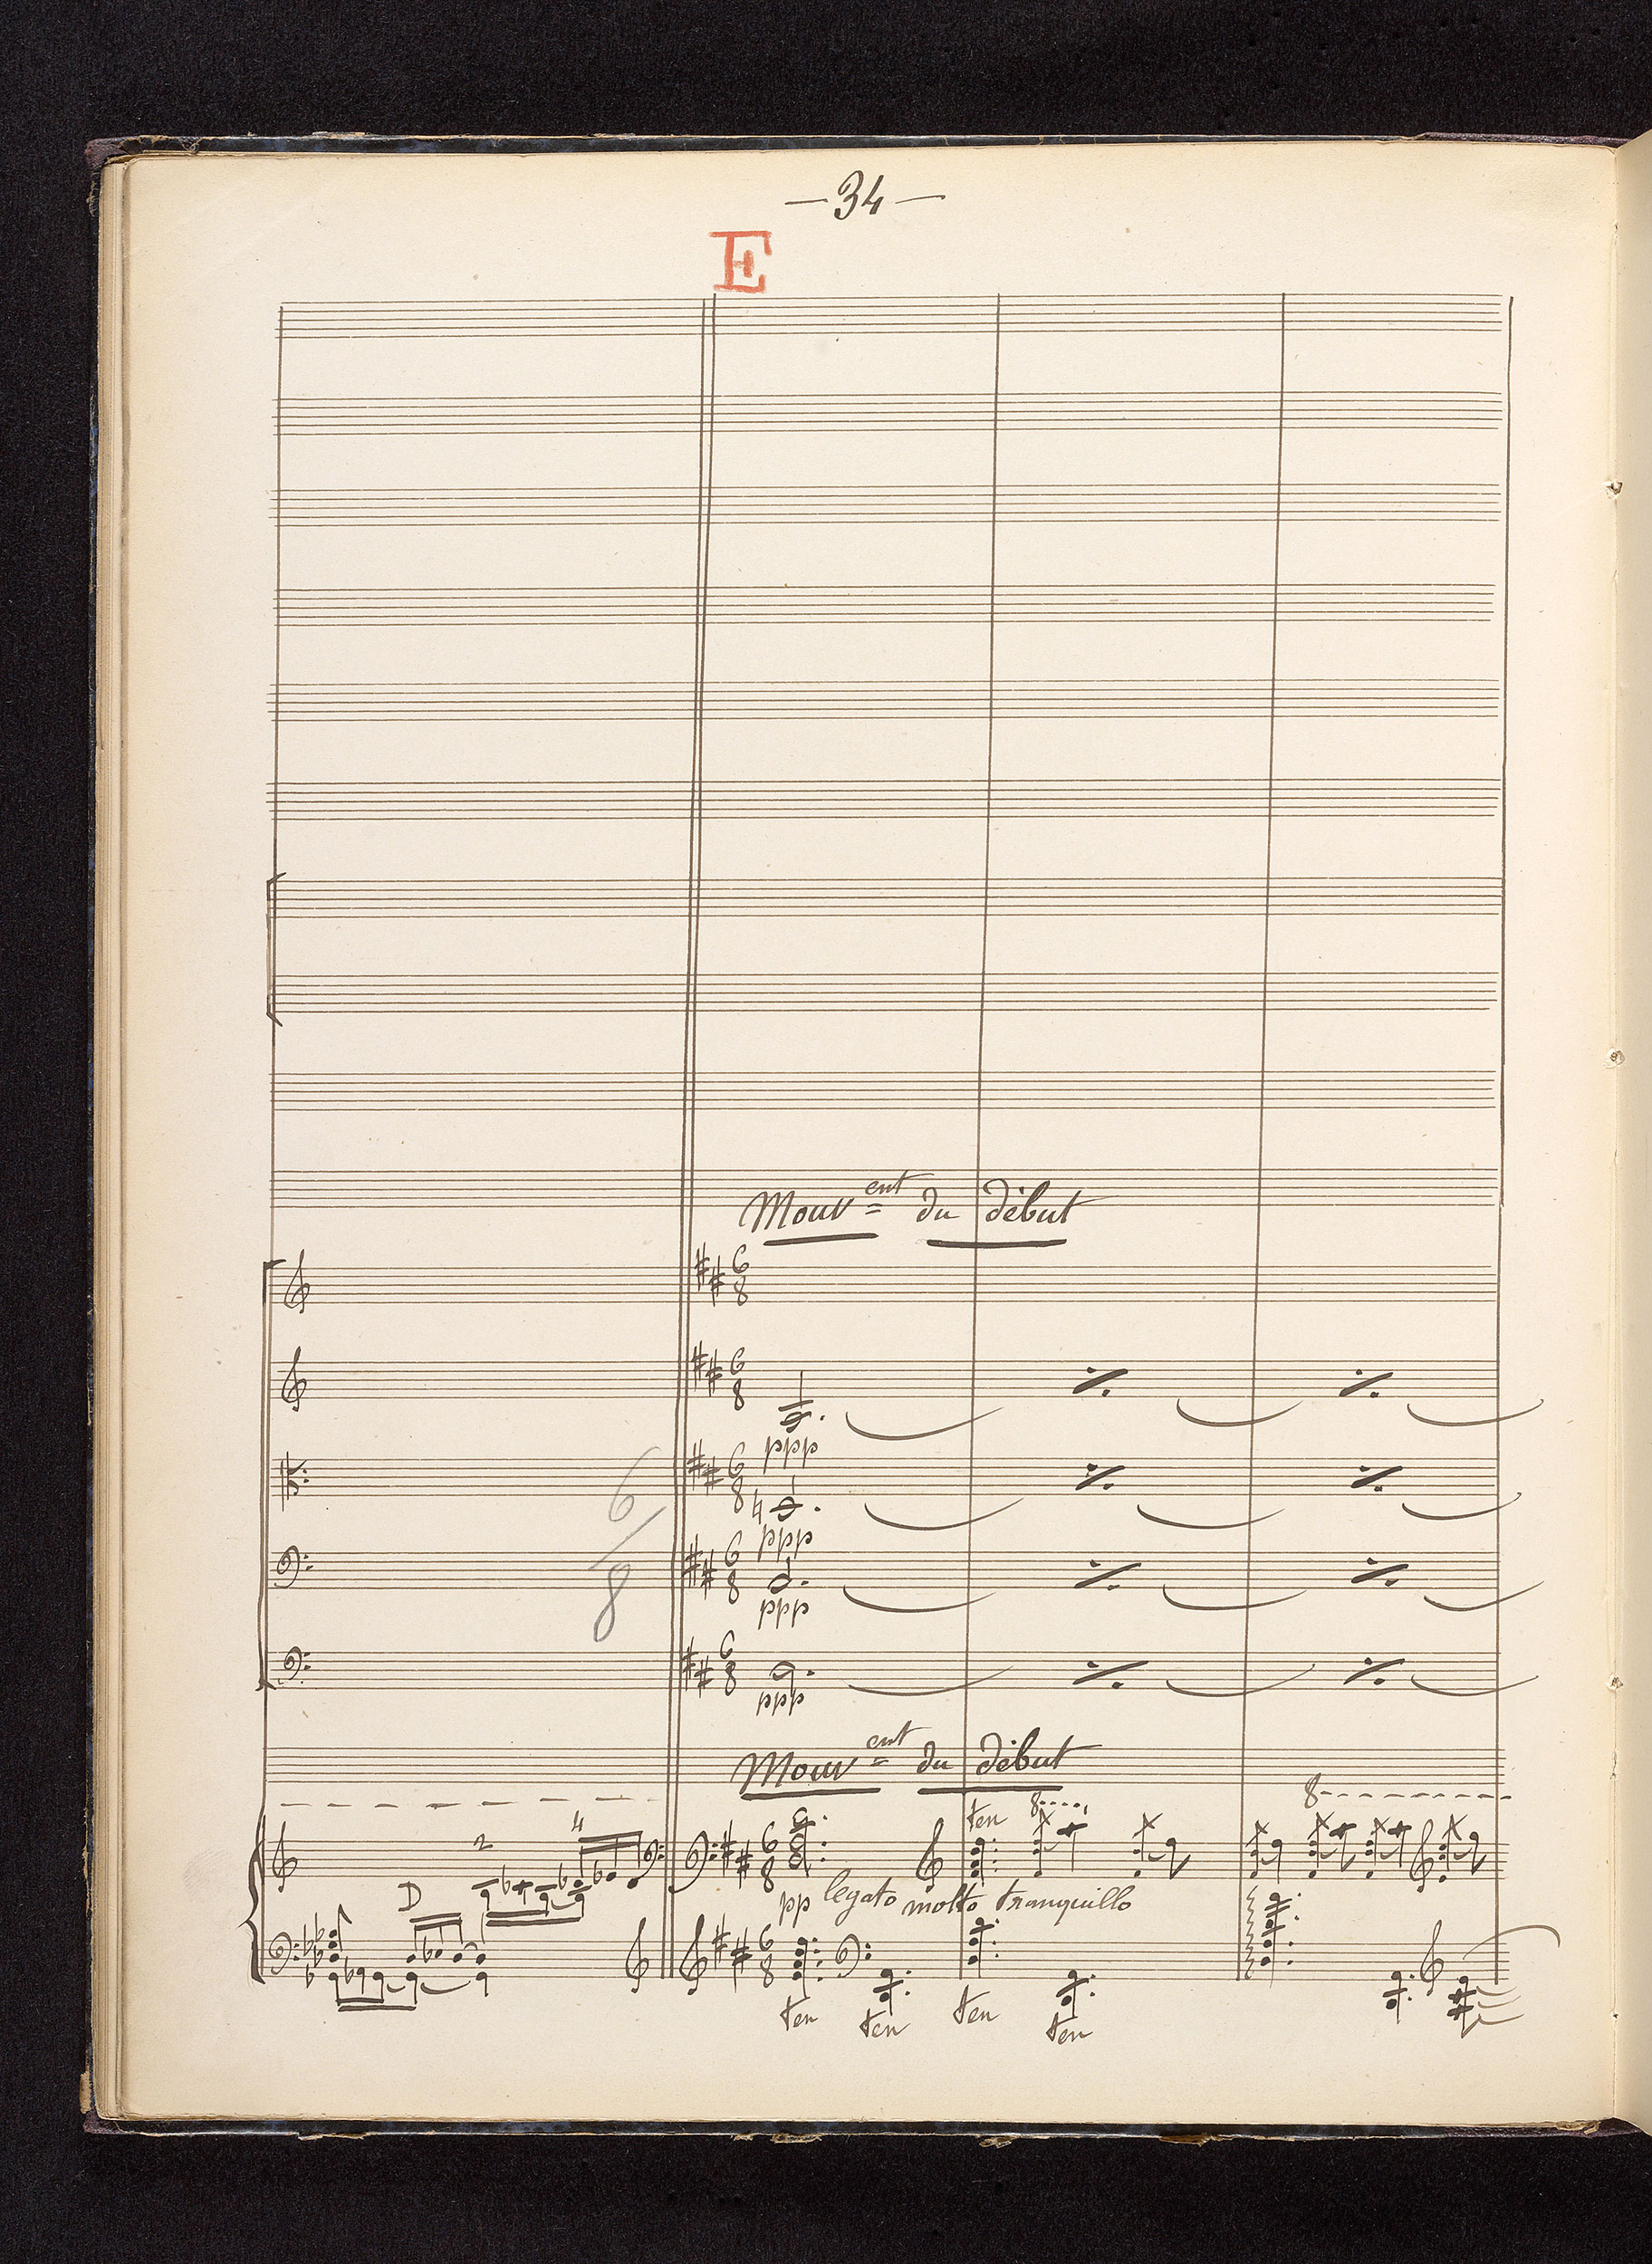 — 34 —
E
Mouv ent du début
6 8
6 8
ppp
6 8
ppp
6/8
6 8
ppp
6 8
ppp
Mouv ent du début
8
2 4 ten 8
6 8
D
pp legato molto tranquillo
6 8
ten ten ten ten